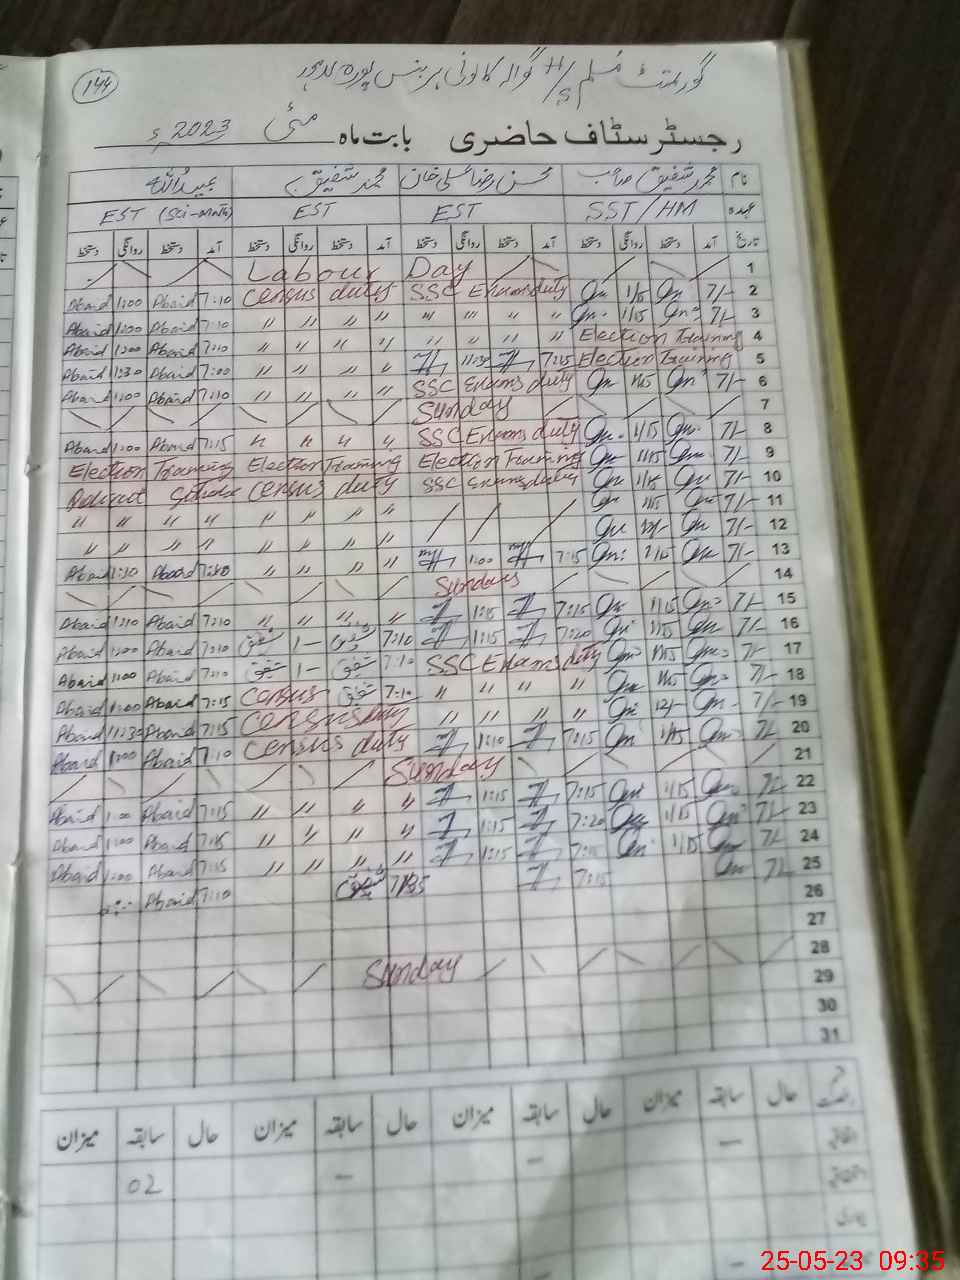 144
گورنمنٹ مسلم H/S گوالہ کالونی ہربنس پورہ لاہور
رجسٹر سٹاف حاضری بابت ماہ مئی 2023ء
نام محمد شفیق صاحب محسن رضا علی خان محمد شفیق عبیداللہ
عہدہ SST/HM EST EST EST (Sci-Math)
تاریخ آمد دستخط روانگی دستخط آمد دستخط روانگی دستخط آمد دستخط روانگی دستخط آمد دستخط روانگی دستخط
Labour Day 1
Abaid 1:00 Abaid 7:10 Census duty SSC Exams duty 1/15 7/- 2
Abaid 1:00 Abaid 7:10 " " " " " " " " 1/15 7/- 3
Abaid 1:00 Abaid 7:10 " " " " " " " " Election Training 4
Abaid 1:30 Abaid 7:00 " " " " 11:30 7:15 Election Training 5
Abaid 1:00 Abaid 7:10 " " " " SSC Exams duty 1/15 7/- 6
Sunday 7
Abaid 1:00 Abaid 7:15 " " " " SSC Exams duty 1/15 7/- 8
Election Training Election Training Election Training 1/15 7/- 9
Census duty SSC Exams duty 1/15 7/- 10
" " " " " " " " 1/15 7/- 11
" " " " " " " " 12/- 7/- 12
Abaid 1:10 Abaid " " " " 1:00 7:15 1/15 7/- 13
Sunday 14
Abaid 1:10 Abaid 7:10 " " " " 1:15 7:15 1/15 7/- 15
Abaid 1:00 Abaid 7:10 شفیق 1– شفیق 7:10 1:15 7:20 1/15 7/- 16
Abaid 1:00 Abaid 7:10 شفیق 1– شفیق 7:10 SSC Exams duty 1/15 7/- 17
Abaid 1:00 Abaid 7:15 Census شفیق 7:10 " " " " 1/15 7/- 18
Abaid 11:30 Abaid 7:15 Census duty " " " " 12/- 7/- 19
Abaid 1:00 Abaid 7:10 Census duty 1:10 7:15 1/15 7/- 20
Sunday 21
Abaid 1:00 Abaid 7:15 " " " " 1:15 7:15 1/15 7/- 22
Abaid 1:00 Abaid 7:15 " " " " 1:15 7:20 1/15 7/- 23
Abaid 1:00 Abaid 7:15 " " " " 1:15 1/15 7/- 24
Abaid 7:10 شفیق 7:15 7/- 25
26
27
Sunday 28
29
30
31
حال سابقہ میزان حال سابقہ میزان حال سابقہ میزان حال سابقہ میزان
اتفاقیہ
02
25-05-23 09:35